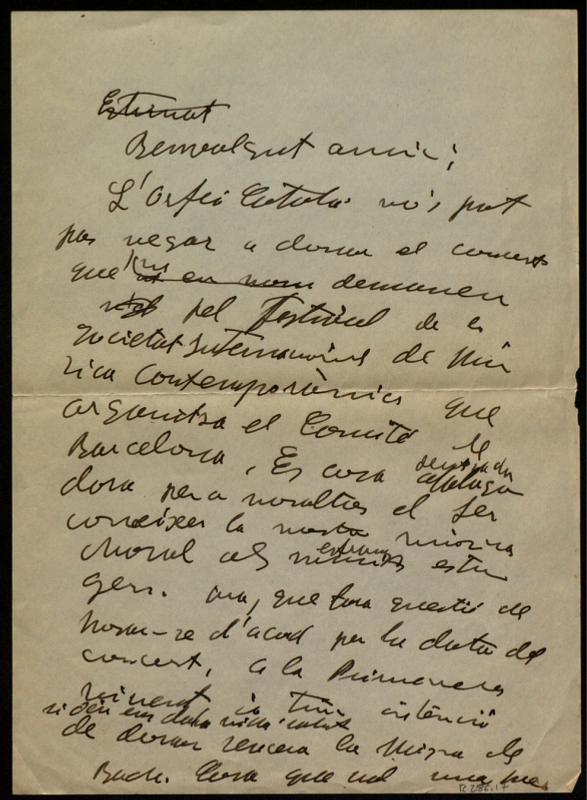 Estimat
Benvolgut amic;
L'Orfeó Català no's pot
pas negar a donar el concert
que ens en nom demanen
pel Festival de la
Societat Internacional de Mú
sica Contemporània que
organitza el Comitè de
Barcelona. Es cosa afalaga
dora per a nosaltres el fer
conèixer la nostra música
choral als
gers. Ara, que tota questió de
posar-se d'acord per la data del
concert, a la Primavera
si Déu ens dona vida i salut
de donar sencera la Missa de
Bach. Cosa que vol una pre
R 286.17